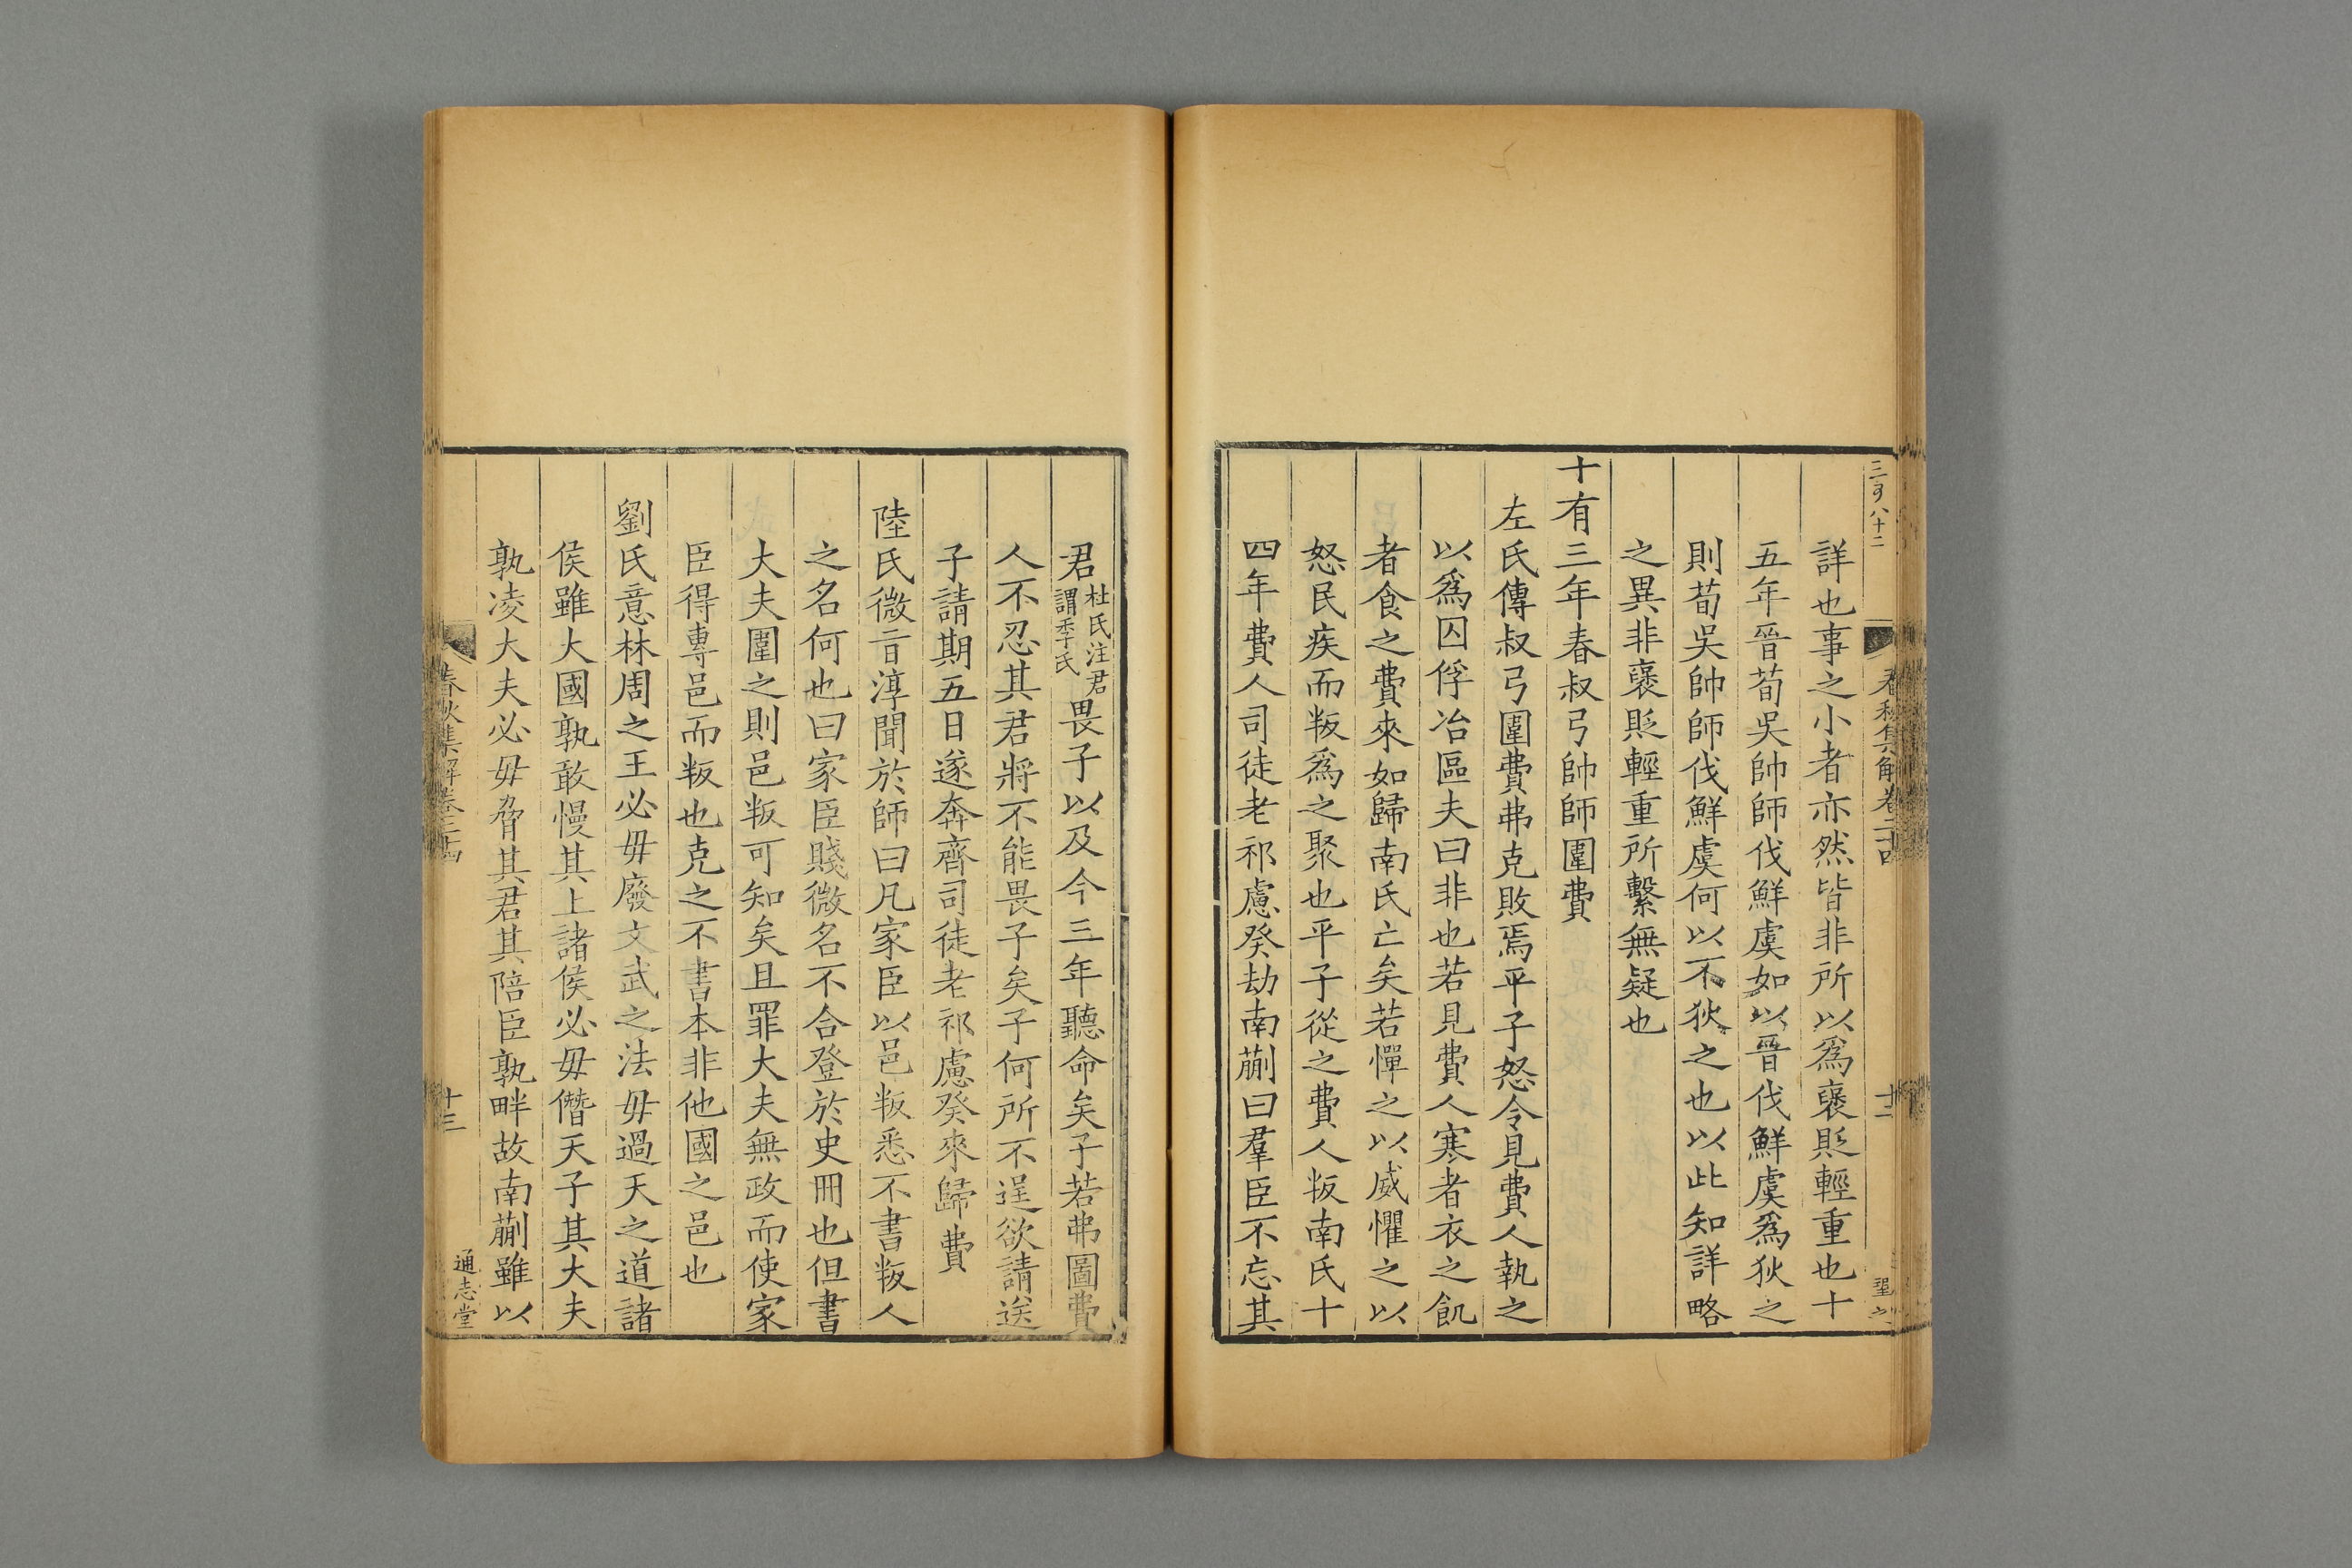 詳也事之小者亦然皆非所以爲襃貶輕重也十
五年晉荀吳帥師伐鮮虞如以晉伐鮮虞爲狄之
則荀吳帥師伐鮮虞何以不狄之也以此知詳略
之異非襃貶輕重所繫無疑也
十有三年春叔弓帥師圍費
左氏傳叔弓圍費弗克敗焉平子怒令見費人執之
以爲囚俘冶區夫曰非也若見費人寒者衣之飢
者食之費來如歸南氏亡矣若憚之以威懼之以
怒民疾而叛爲之聚也平子從之費人叛南氏十
四年費人司徒老祁慮癸劫南蒯曰羣臣不忘其
君杜氏注君謂季氏畏子以及今三年聽命矣子若弗圖費
人不忍其君將不能畏子矣子何所不逞欲請送
子請期五日遂奔齊司徒老祁慮癸來歸費
陸氏微旨淳聞於師曰凡家臣以邑叛悉不書叛人
之名何也曰家臣賤微名不合登於史冊也但書
大夫圍之則邑叛可知矣且罪大夫無政而使家
臣得專邑而叛也克之不書本非他國之邑也
劉氏意林周之王必毋廢文武之法毋過天之道諸
侯雖大國孰敢慢其上諸侯必毋僭天子其大夫
孰凌大夫必毋脅其君其陪臣孰畔故南蒯雖以
春秋集解卷二十四
十三
通志堂